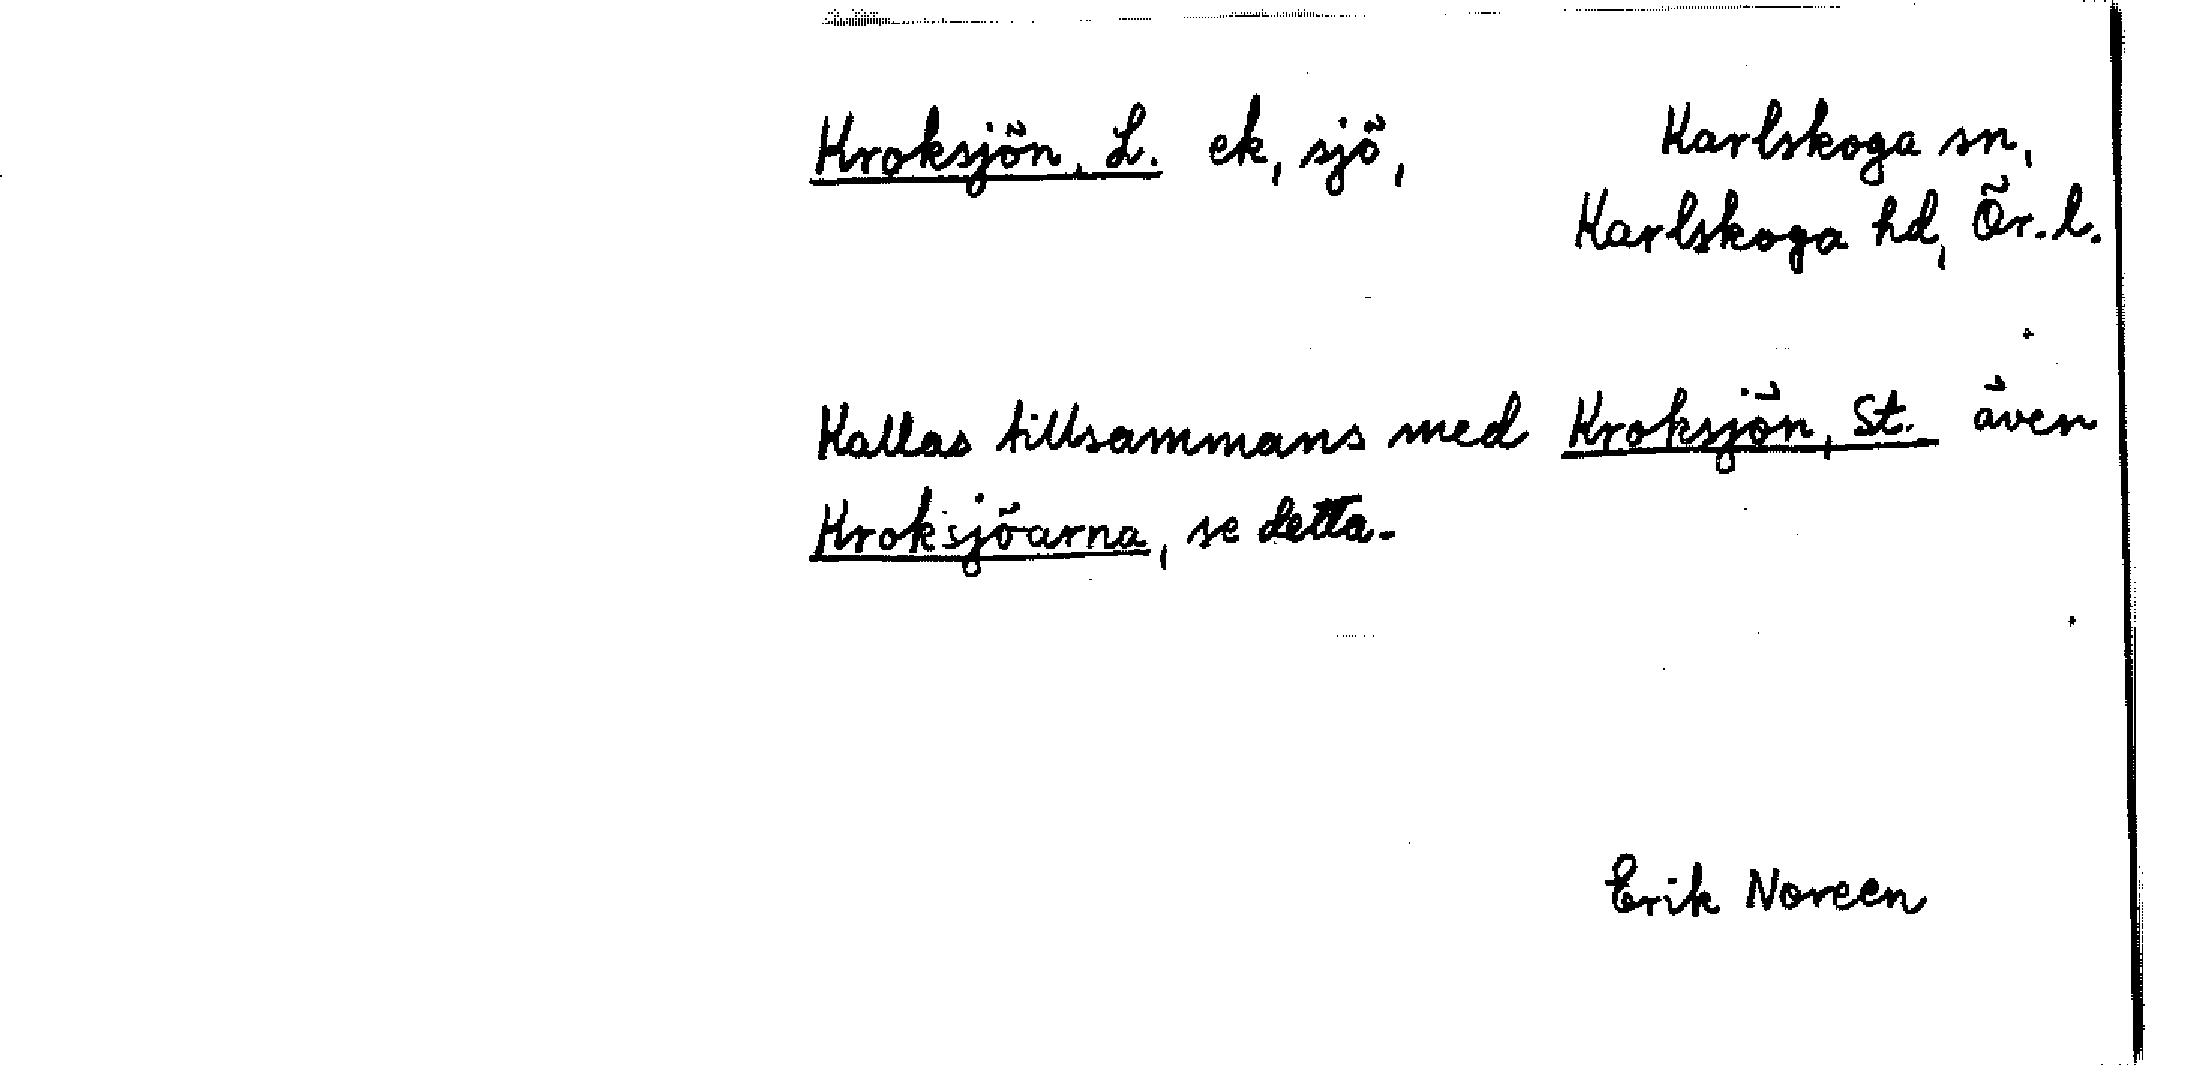 Kroksjön, L. ek, sjö, Karlskoga sn,
Karlskoga hd, Ör. l.
Kallas tillsammans med Kroksjön, St. även
Kroksjöarna, se detta.
Erik Noreen